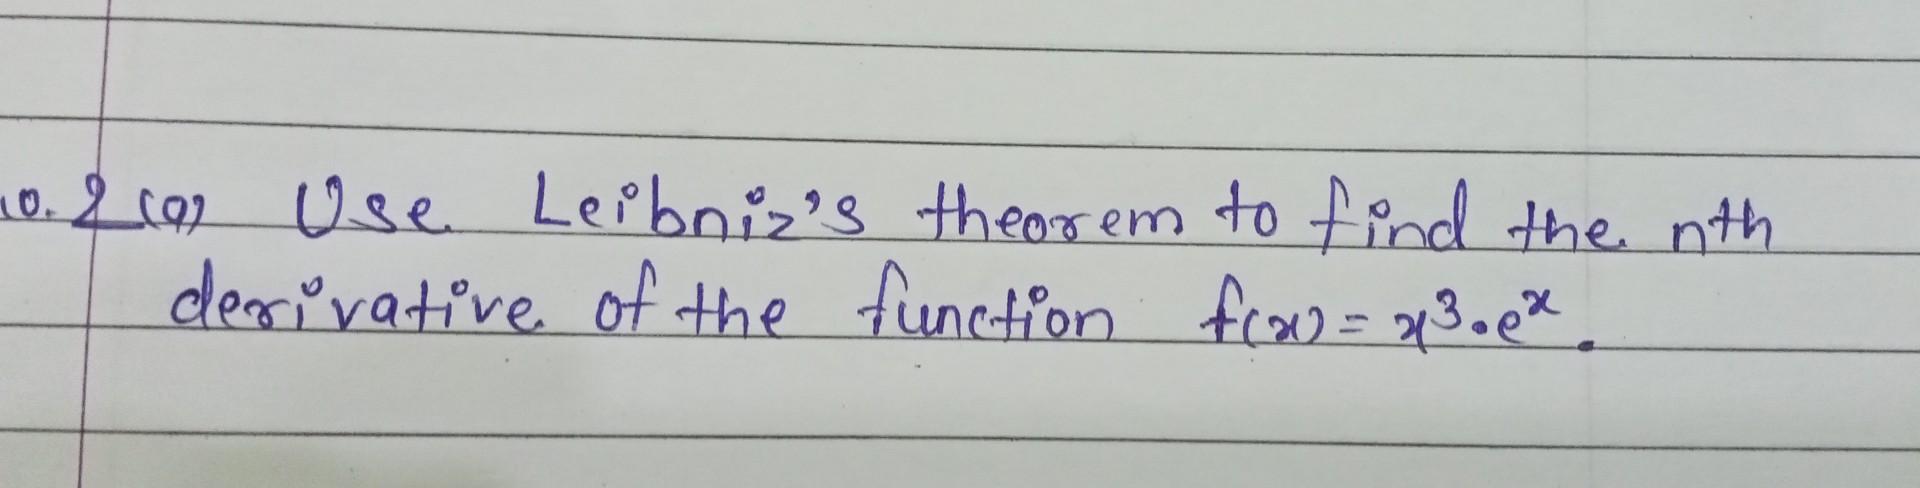 10. 2 (a) Use Leibniz's theorem to find the nth
derivative of the function f(x) = x³.eˣ.